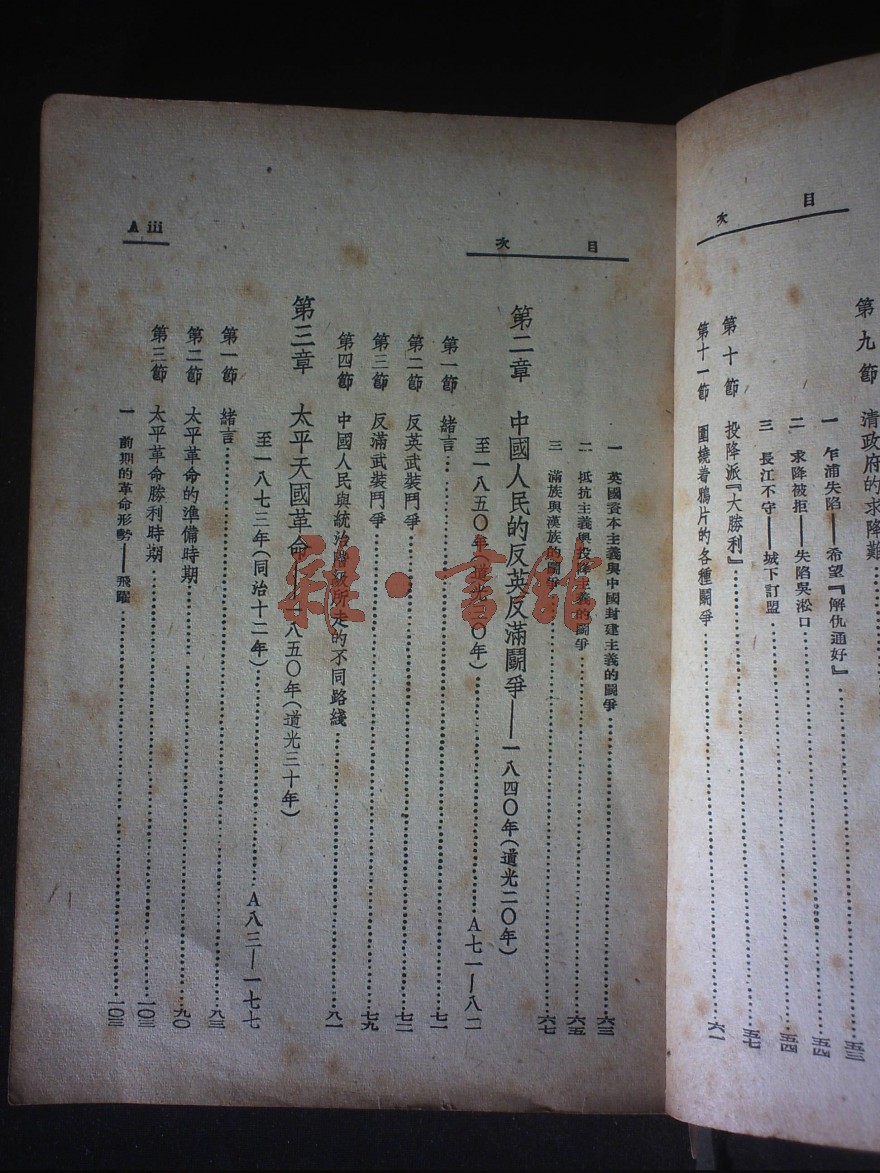 目次
第九節 清政府的求降難
五三
一 乍浦失陷——希望『解仇通好』
五四
二 求降被拒——失陷吳淞口
五四
三 長江不守——城下訂盟
第十節 投降派『大勝利』
五七
第十一節 圍繞着鴉片的各種鬭爭
六一
目次
一 英國資本主義與中國封建主義的鬭爭
六三
二 抵抗主義與投降主義的鬭爭
六五
三 滿族與漢族的鬭爭
六七
第二章 中國人民的反英反滿鬭爭——一八四〇年(道光二〇年)
至一八五〇年(道光三〇年)
A七一—八二
第一節 緒言
七一
第二節 反英武裝鬥爭
七二
第三節 反滿武裝鬥爭
七九
第四節 中國人民與統治階級所走的不同路綫
八一
第三章 太平天國革命——一八五〇年(道光三十年)
至一八七三年(同治十二年)
A八三—一七七
第一節 緒言
八三
第二節 太平革命的準備時期
九〇
第三節 太平革命勝利時期
一〇三
一 前期的革命形勢——飛躍
一〇三
A iii
雜·書館